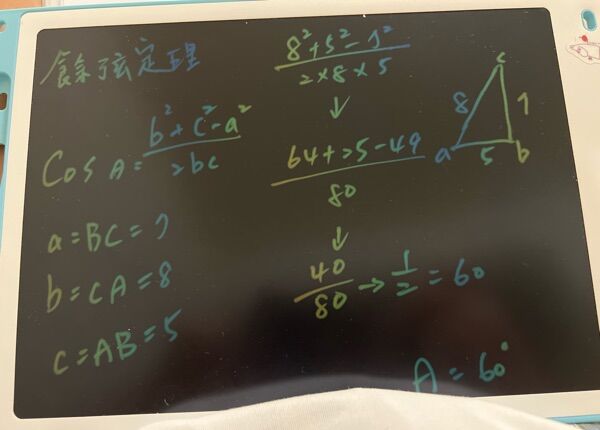 餘弦定理
Cos A = b²+c²-a² / 2bc
a = BC = 7
b = CA = 8
c = AB = 5
8²+5²-7² / 2×8×5
↓
64+25-49 / 80
↓
40 / 80 → 1/2 = 60
A = 60°
c
8
7
a
5
b